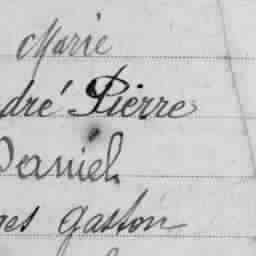 Marie
dré Pierre
Daniel
ges Gaston